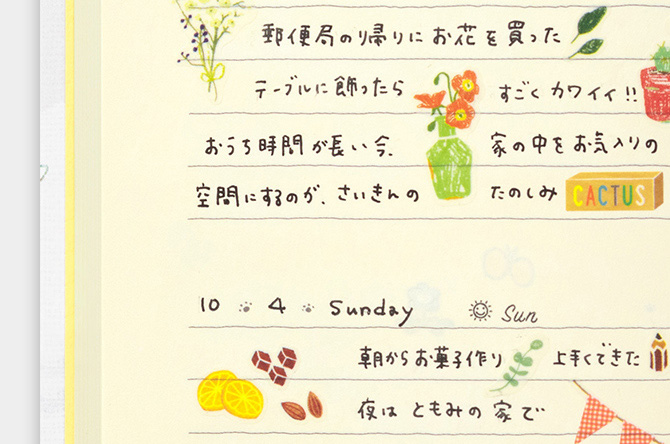 郵便局のり帰りに お花を買った
テーブルに飾ったら すごく カワイイ!!
おうち時間が長い今、 家の中をお気入りの
空間にするのが、さいきんの たのしみ CACTUS
10 4 Sunday Sun
朝からお菓子作り 上手くできた
夜は ともみの 家で